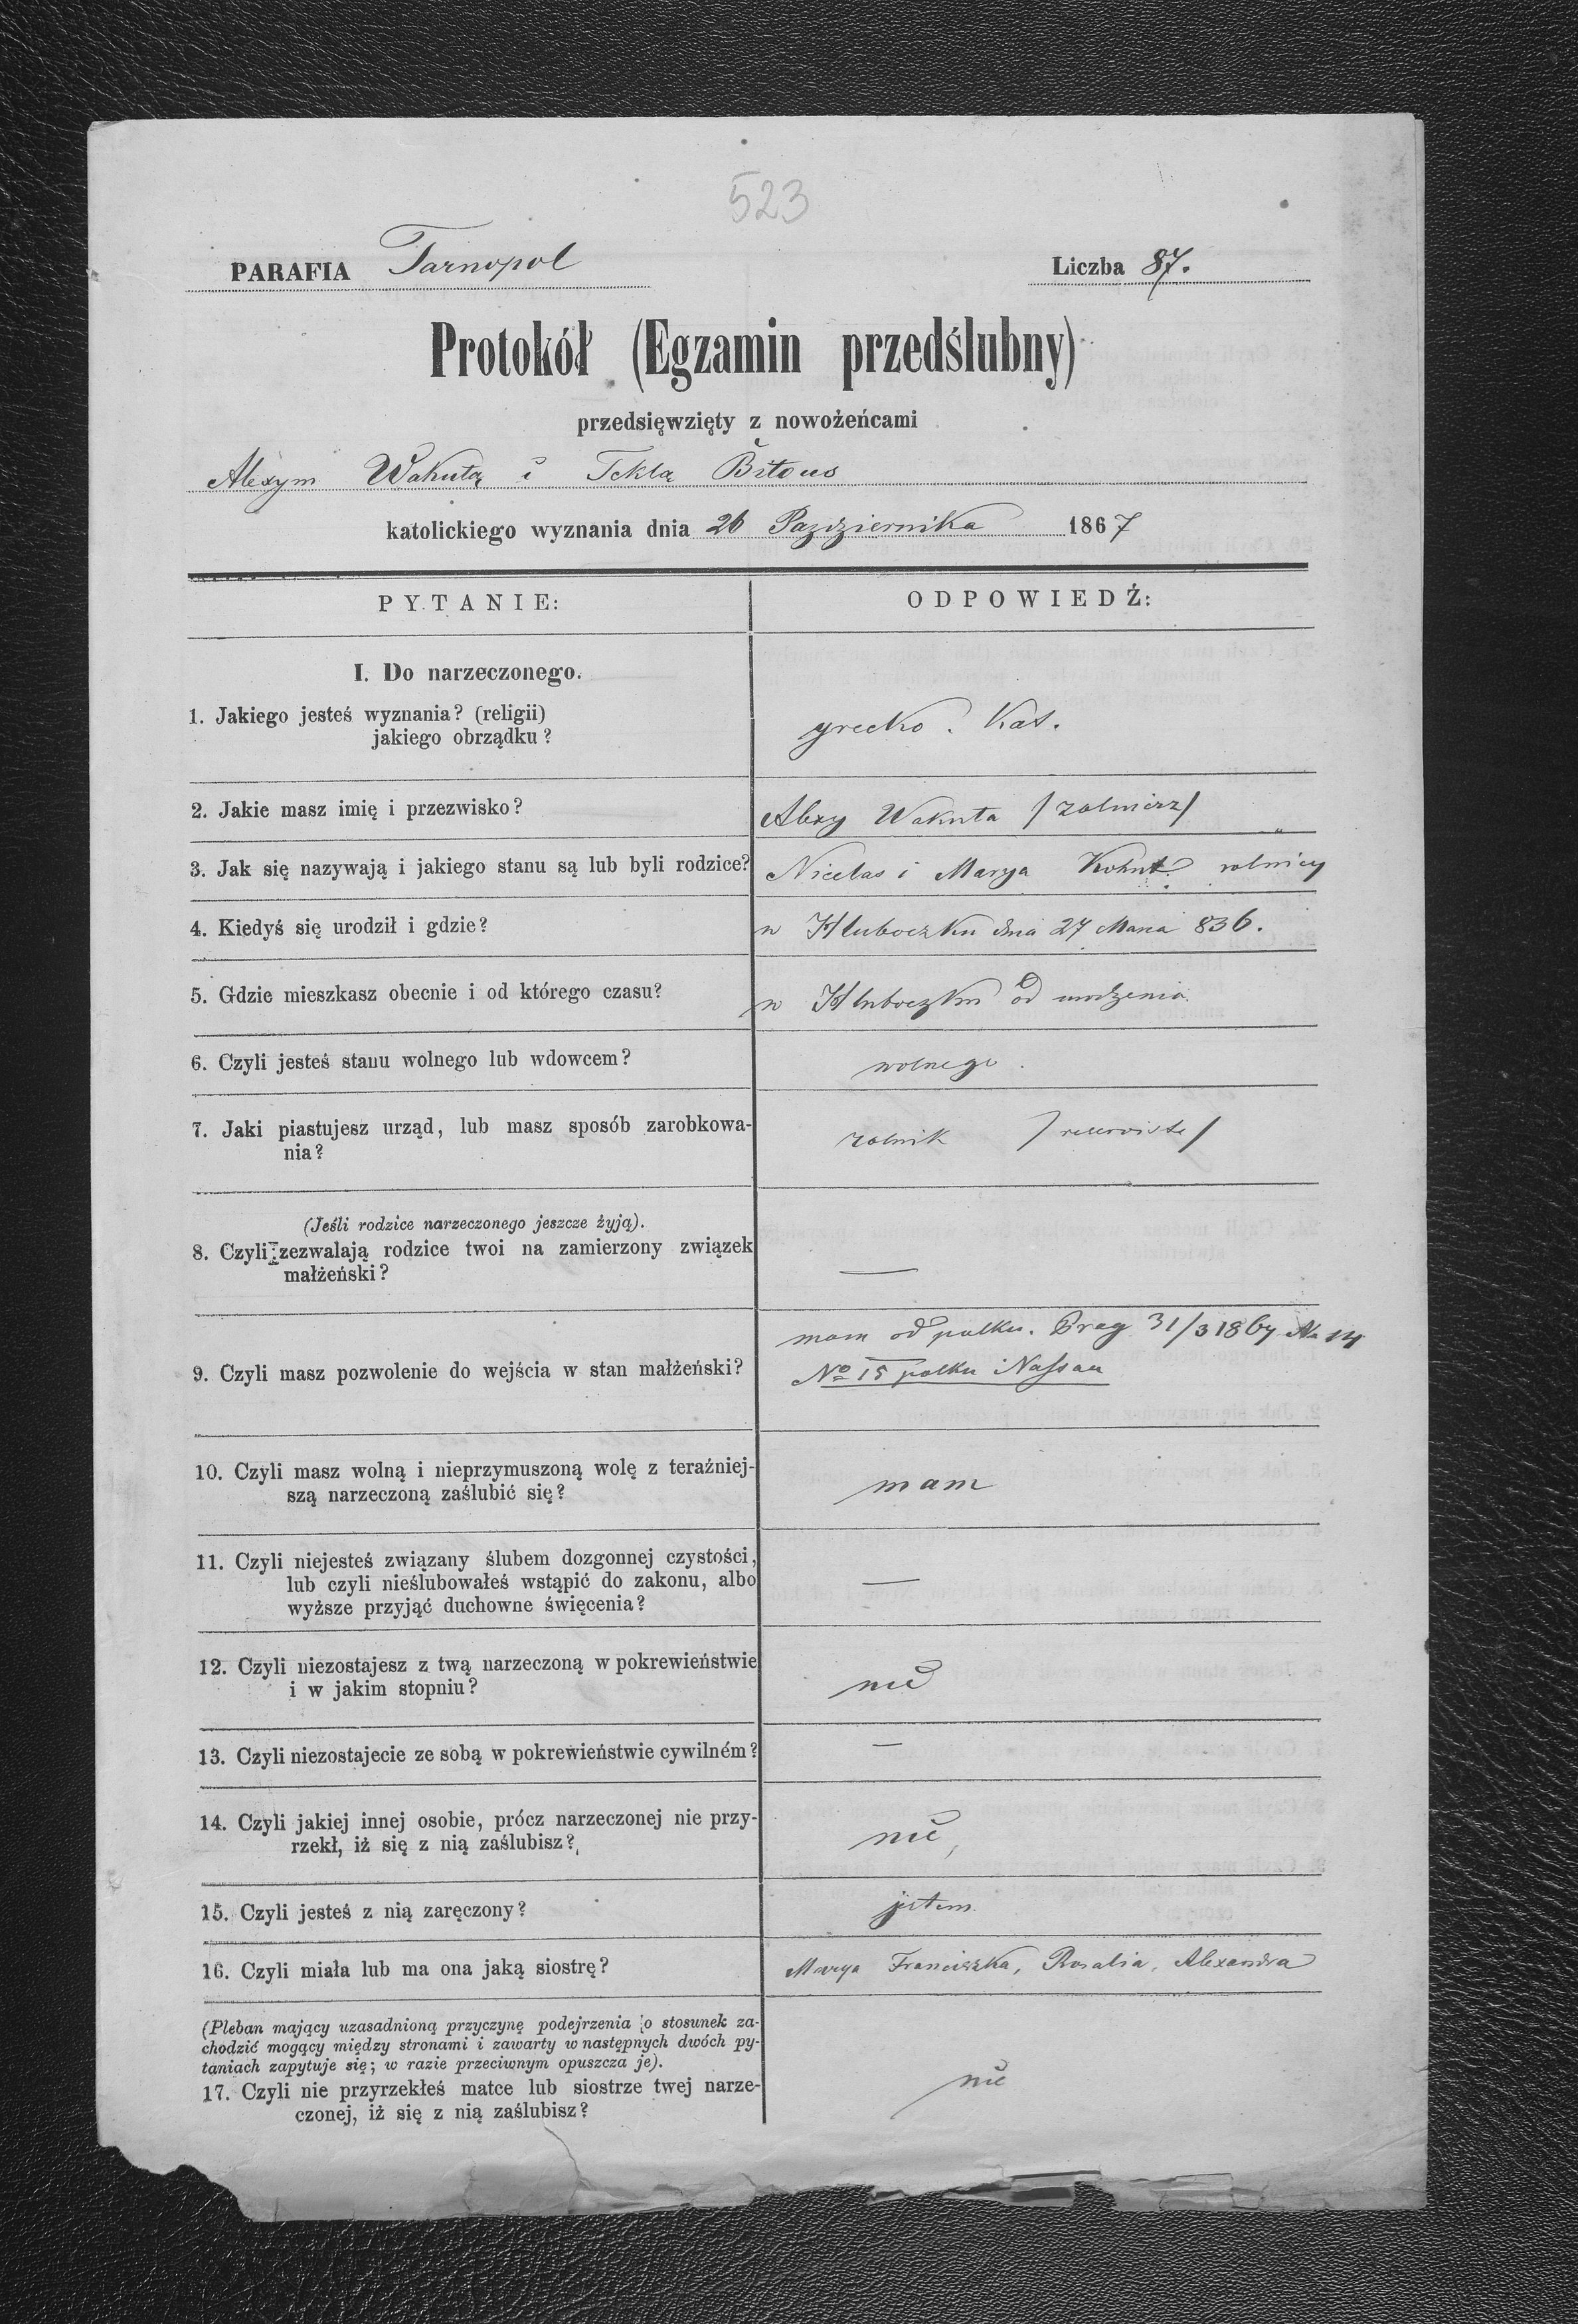 523
PARAFIA Tarnopol Liczba 87.
Protokół (Egzamin przedślubny)
przedsięwzięty z nowożeńcami
Alexym Wakutą i Teklą Bitous
katolickiego wyznania dnia 26 Pazdziernika 1867
PYTANIE: ODPOWIEDŹ:
I. Do narzeczonego.
1. Jakiego jesteś wyznania? (religii)
jakiego obrządku? grecko. Kat.
2. Jakie masz imię i przezwisko? Alexy Wakuta /zolnierz/
3. Jak się nazywają i jakiego stanu są lub byli rodzice? Nicolas i Marya rolnicy
4. Kiedyś się urodził i gdzie? w Hluboczku dnia 27 836.
5. Gdzie mieszkasz obecnie i od którego czasu? w Hluboczku od urodzenia
6. Czyli jesteś stanu wolnego lub wdowcem? wolnego.
7. Jaki piastujesz urząd, lub masz sposób zarobkowa-
nia? rolnik /
(Jeśli rodzice narzeczonego jeszcze żyją).
8. Czyli zezwalają rodzice twoi na zamierzony związek
małżeński? —
mam od pulku. Prag 31/3 1867 No 14
9. Czyli masz pozwolenie do wejścia w stan małżeński? No 15 pulku Nassau
10. Czyli masz wolną i nieprzymuszoną wolę z teraźniej-
szą narzeczoną zaślubić się? mam
11. Czyli niejesteś związany ślubem dozgonnej czystości,
lub czyli nieślubowałeś wstąpić do zakonu, albo —
wyższe przyjąć duchowne święcenia?
12. Czyli niezostajesz z twą narzeczoną w pokrewieństwie
i w jakim stopniu? nie
13. Czyli niezostajecie ze sobą w pokrewieństwie cywilném? —
14. Czyli jakiej innej osobie, prócz narzeczonej nie przy-
rzekł, iż się z nią zaślubisz? nie,
15. Czyli jesteś z nią zaręczony? jestem
16. Czyli miała lub ma ona jaką siostrę? Marya Franciszka, Rosalia, Alexandra
(Pleban mający uzasadnioną przyczynę podejrzenia o stosunek za-
chodzić mogący między stronami i zawarty w następnych dwóch py-
taniach zapytuje się; w razie przeciwnym opuszcza je).
17. Czyli nie przyrzekłeś matce lub siostrze twej narze- nie
czonej, iż się z nią zaślubisz?